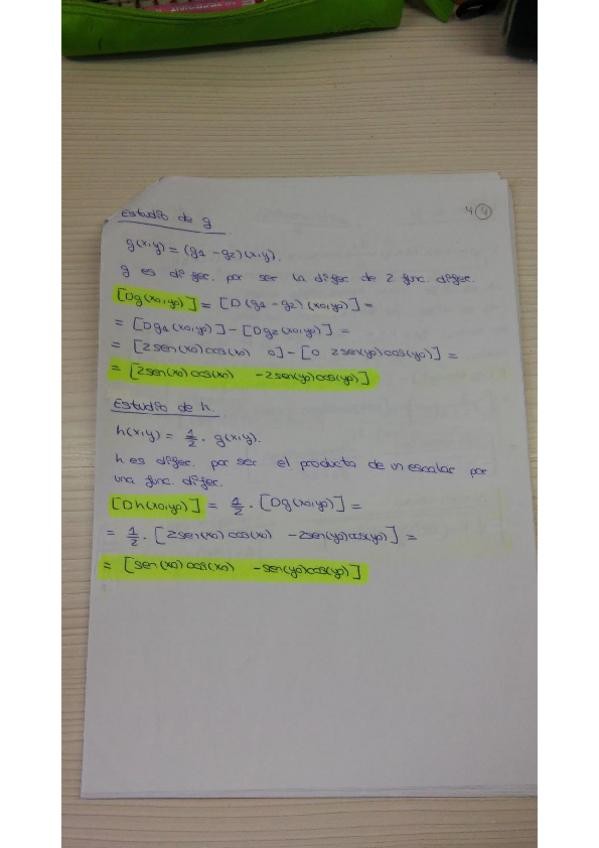 4 (4)
Estudio de g
g(x,y) = (g1 - g2)(x,y).
g es difer. por ser la difer de 2 func. difer.
[Dg(x0,y0)] = [D(g1 - g2)(x0,y0)] =
= [Dg1(x0,y0)] - [Dg2(x0,y0)] =
= [2sen(x0)cos(x0) 0] - [0 2sen(y0)cos(y0)] =
= [2sen(x0)cos(x0) -2sen(y0)cos(y0)]
Estudio de h.
h(x,y) = 1/2 · g(x,y).
h es difer. por ser el producto de un escalar por
una func. difer.
[Dh(x0,y0)] = 1/2 · [Dg(x0,y0)] =
= 1/2 · [2sen(x0)cos(x0) -2sen(y0)cos(y0)] =
= [sen(x0)cos(x0) -sen(y0)cos(y0)]